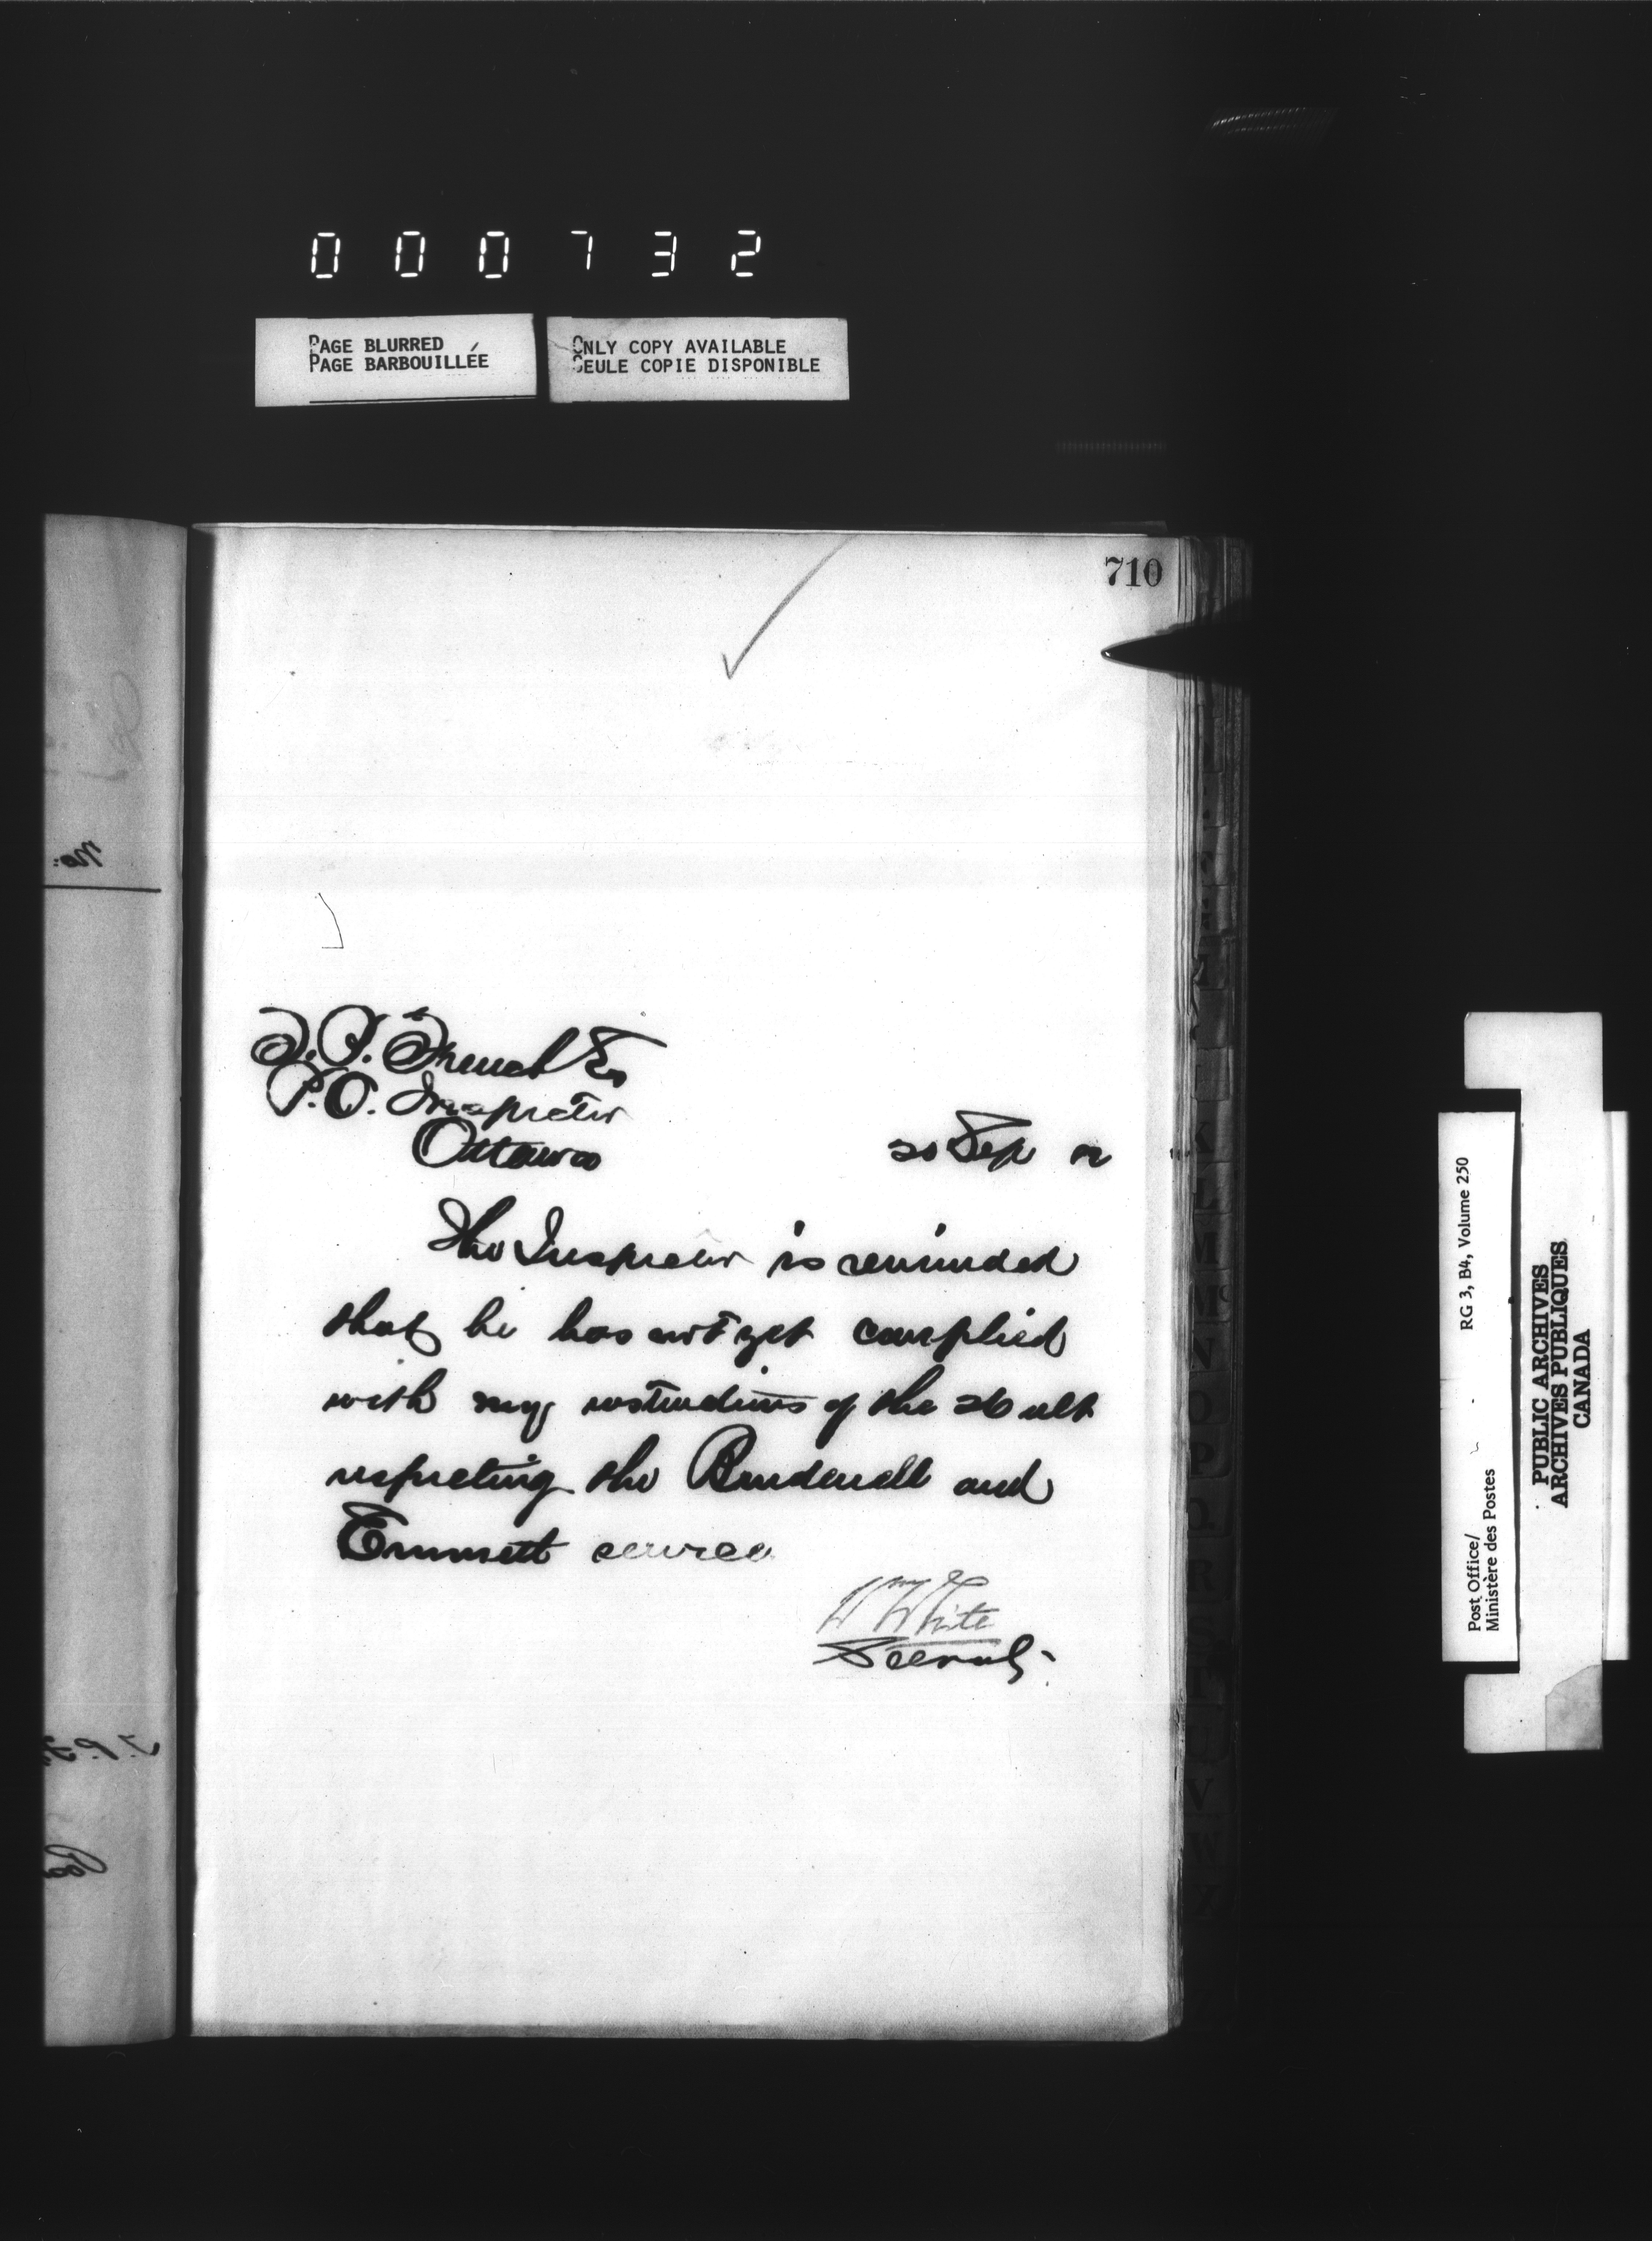 000732
PAGE BLURRED
PAGE BARBOUILLÉE
ONLY COPY AVAILABLE
SEULE COPIE DISPONIBLE
710
T.P. French Esq
P.O. Inspector
Ottawa
20 Sep
The Inspector is reminded
that he has not yet complied
with my instructions of the 26 ult
respecting the Brudenell and
Emmett service
Wm White
Secrety.
RG 3, B4, Volume 250
Post Office/
Ministère des Postes
PUBLIC ARCHIVES
ARCHIVES PUBLIQUES
CANADA
K
L
M
Mc
N
O
P
Q
R
S
T
U
V
W